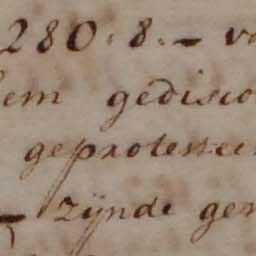 280:8:— v
em gedisco
geprotestee
— zÿnde ge